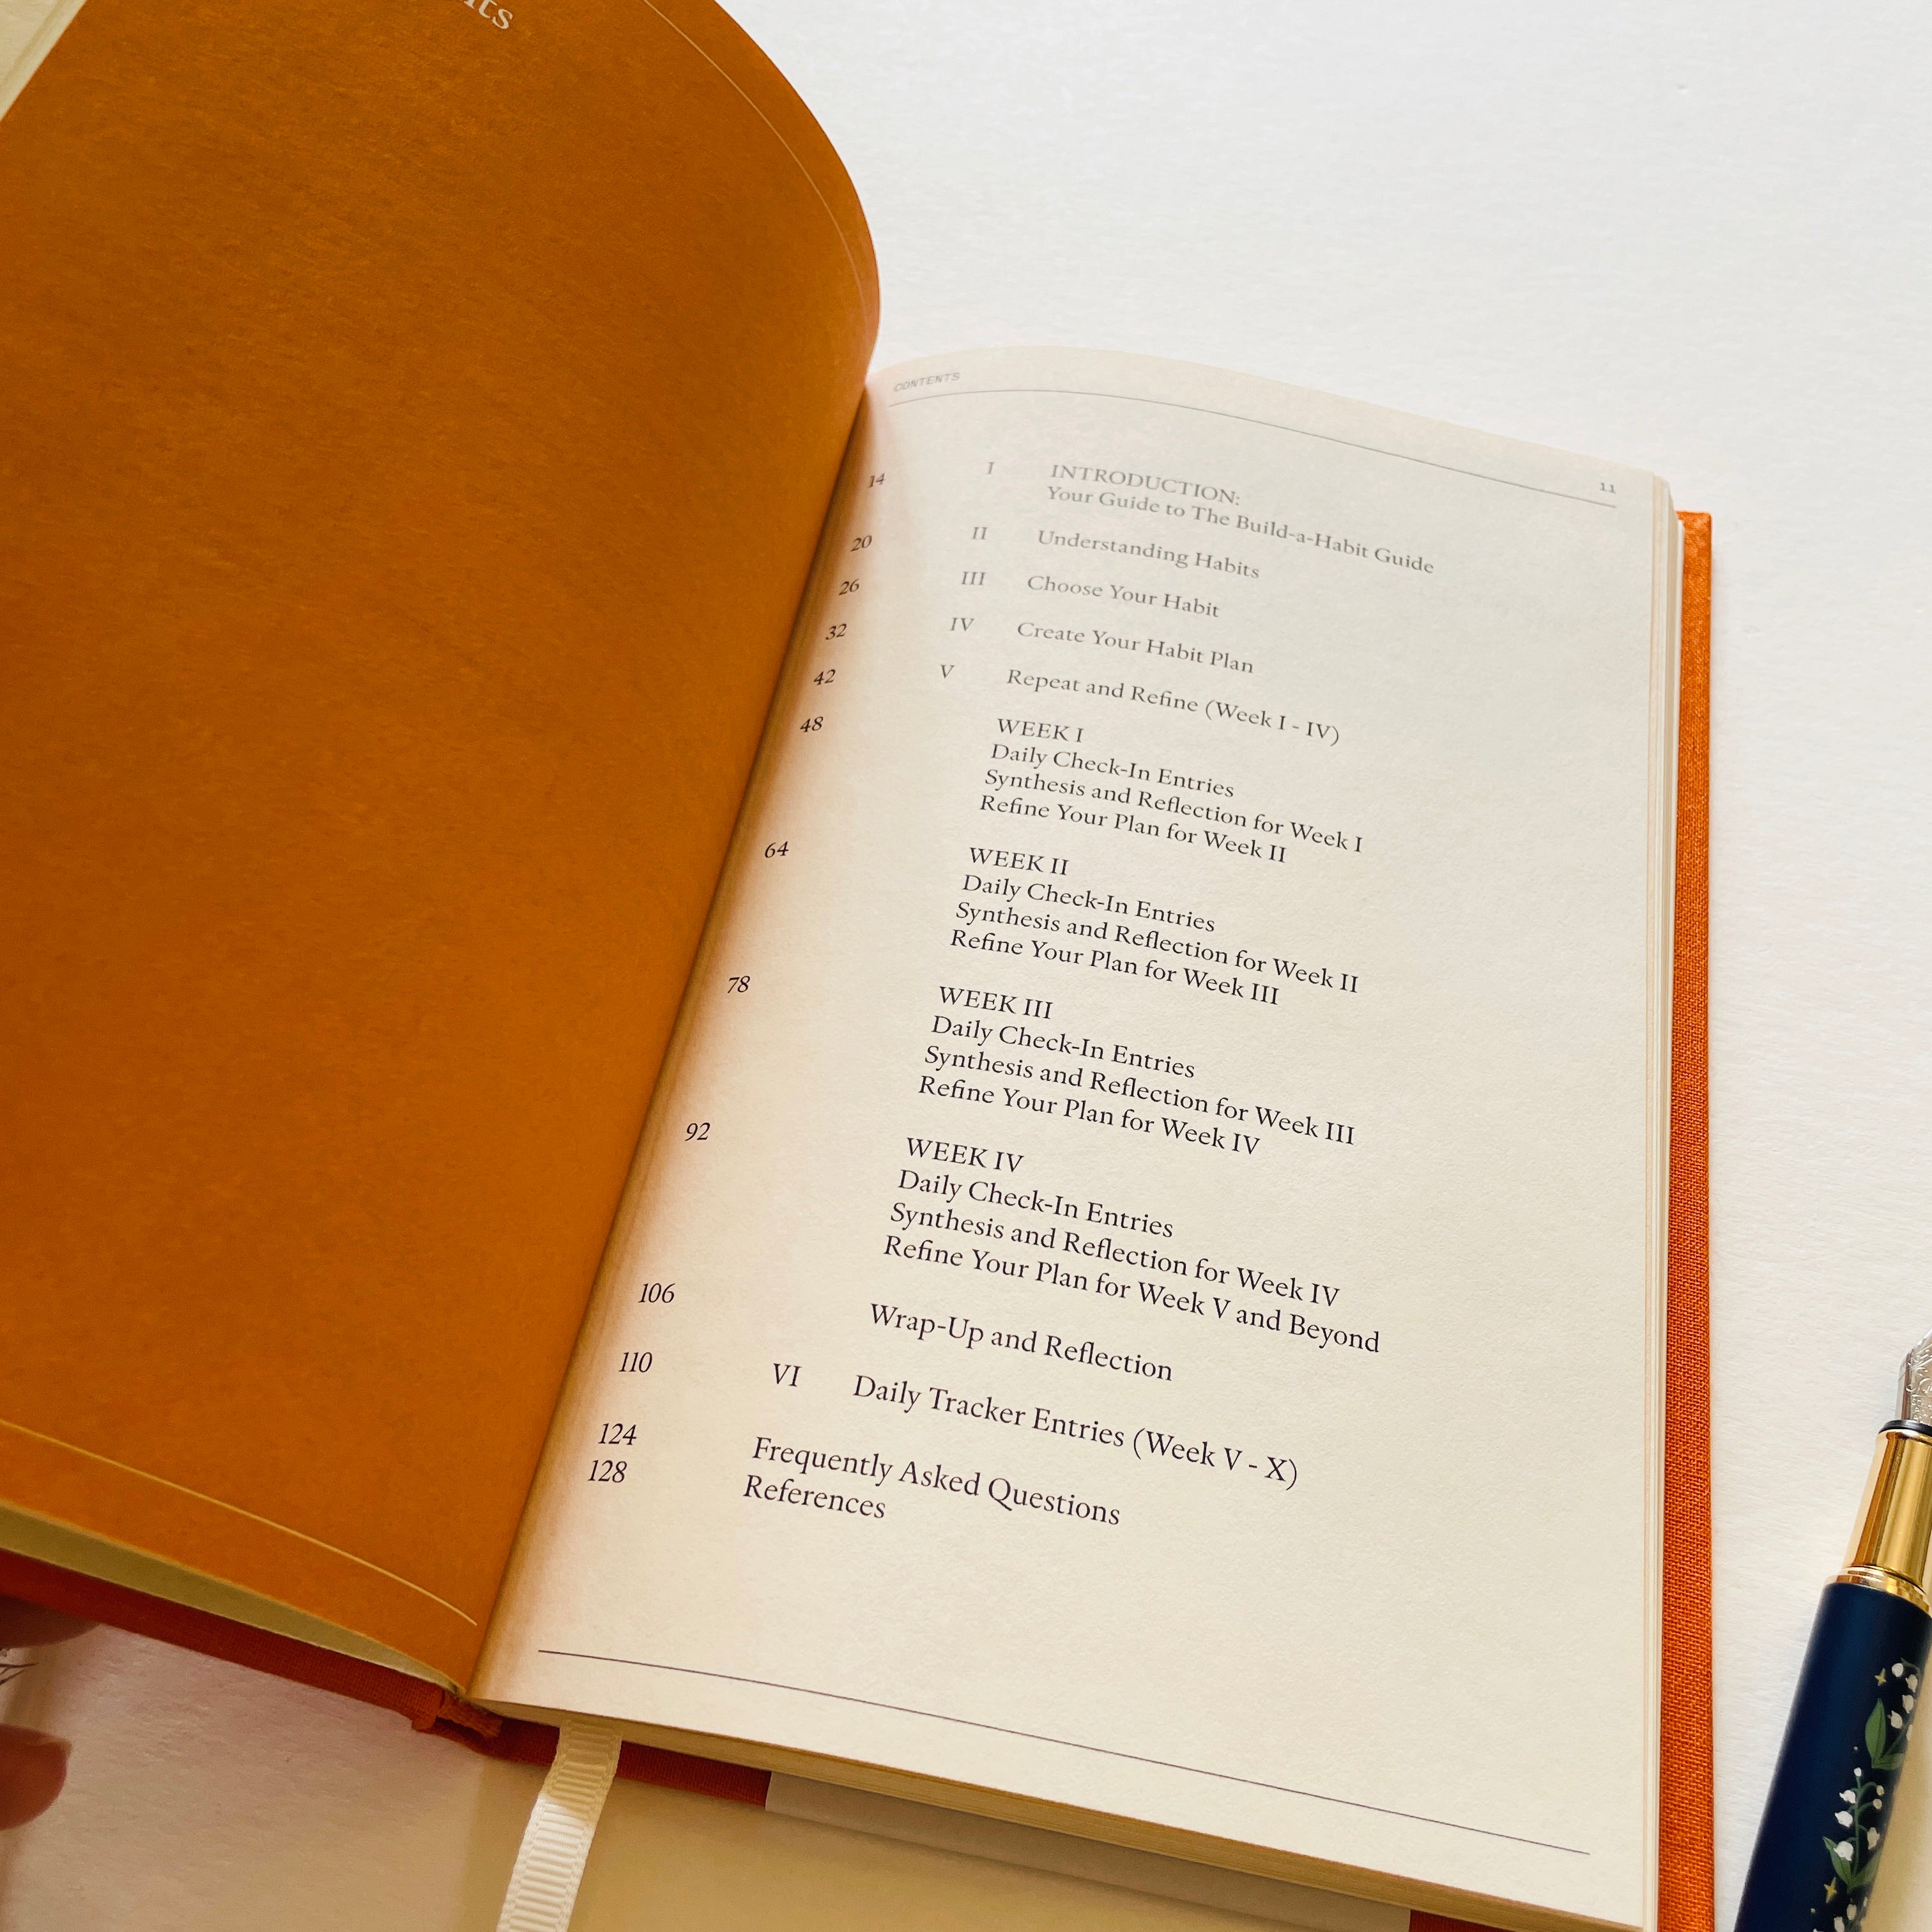 CONTENTS 11
14 I INTRODUCTION:
Your Guide to The Build-a-Habit Guide
20 II Understanding Habits
26 III Choose Your Habit
32 IV Create Your Habit Plan
42 V Repeat and Refine (Week I - IV)
48 WEEK I
Daily Check-In Entries
Synthesis and Reflection for Week I
Refine Your Plan for Week II
64 WEEK II
Daily Check-In Entries
Synthesis and Reflection for Week II
Refine Your Plan for Week III
78 WEEK III
Daily Check-In Entries
Synthesis and Reflection for Week III
Refine Your Plan for Week IV
92 WEEK IV
Daily Check-In Entries
Synthesis and Reflection for Week IV
Refine Your Plan for Week V and Beyond
106 Wrap-Up and Reflection
110 VI Daily Tracker Entries (Week V - X)
124 Frequently Asked Questions
128 References